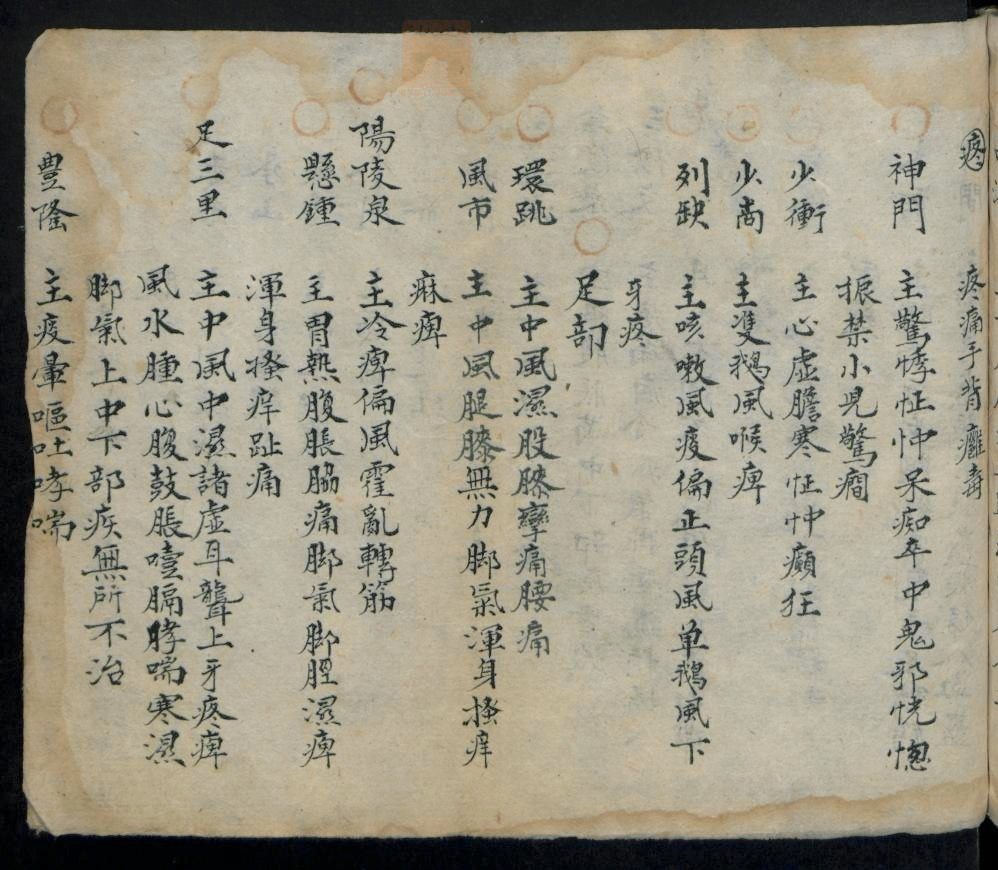 疼痛手背癰毒
神門 主驚悸怔忡呆痴卒中鬼邪恍惚
振禁小児驚癇
少衝 主心虛膽寒怔忡癲狂
少啇 主雙鵝風喉痺
列缺 主咳嗽風痰偏正頭風单鵝風下
牙疼
足部
環跳 主中風濕股膝攣痛腰痛
風市 主中風腿膝無力脚氣渾身搔痒
麻痺
陽陵泉 主冷痺偏風霍亂轉筋
懸鍾 主胃熱腹脹脇痛脚氣脚脛濕痺
渾身搔痒趾痛
足三里 主中風中濕諸虛耳聾上牙疼痺
風水腫心腹鼓脹噎膈哮喘寒濕
脚氣上中下部疾無所不治
豊隆 主痰暈嘔吐哮喘